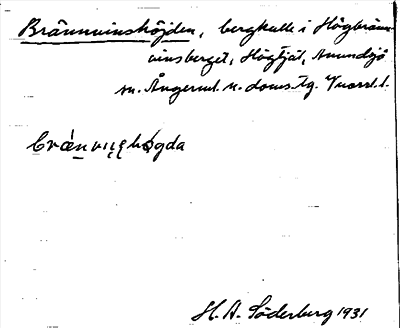 Brännvinshöjden, bergkulle i Högbränn-
vinsberget, Högtjäl, Anundsjö
sn. Ångerml. n. doms. tg. Vnorrl. l.
brä́nvi̜ṇshǿgda
H. A. Söderberg 1931